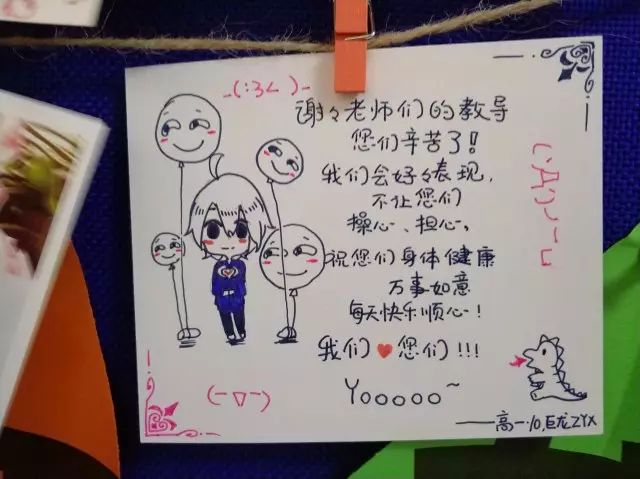 _(:3く )_
谢々老师们的教导
您们辛苦了!
我们会好々表现,
不让您们
操心、担心,
祝您们身体健康
万事如意
每天快乐顺心!
我们♥您们!!!
Yooooo~
(-▽-)
——高一·10,巨龙ZYX